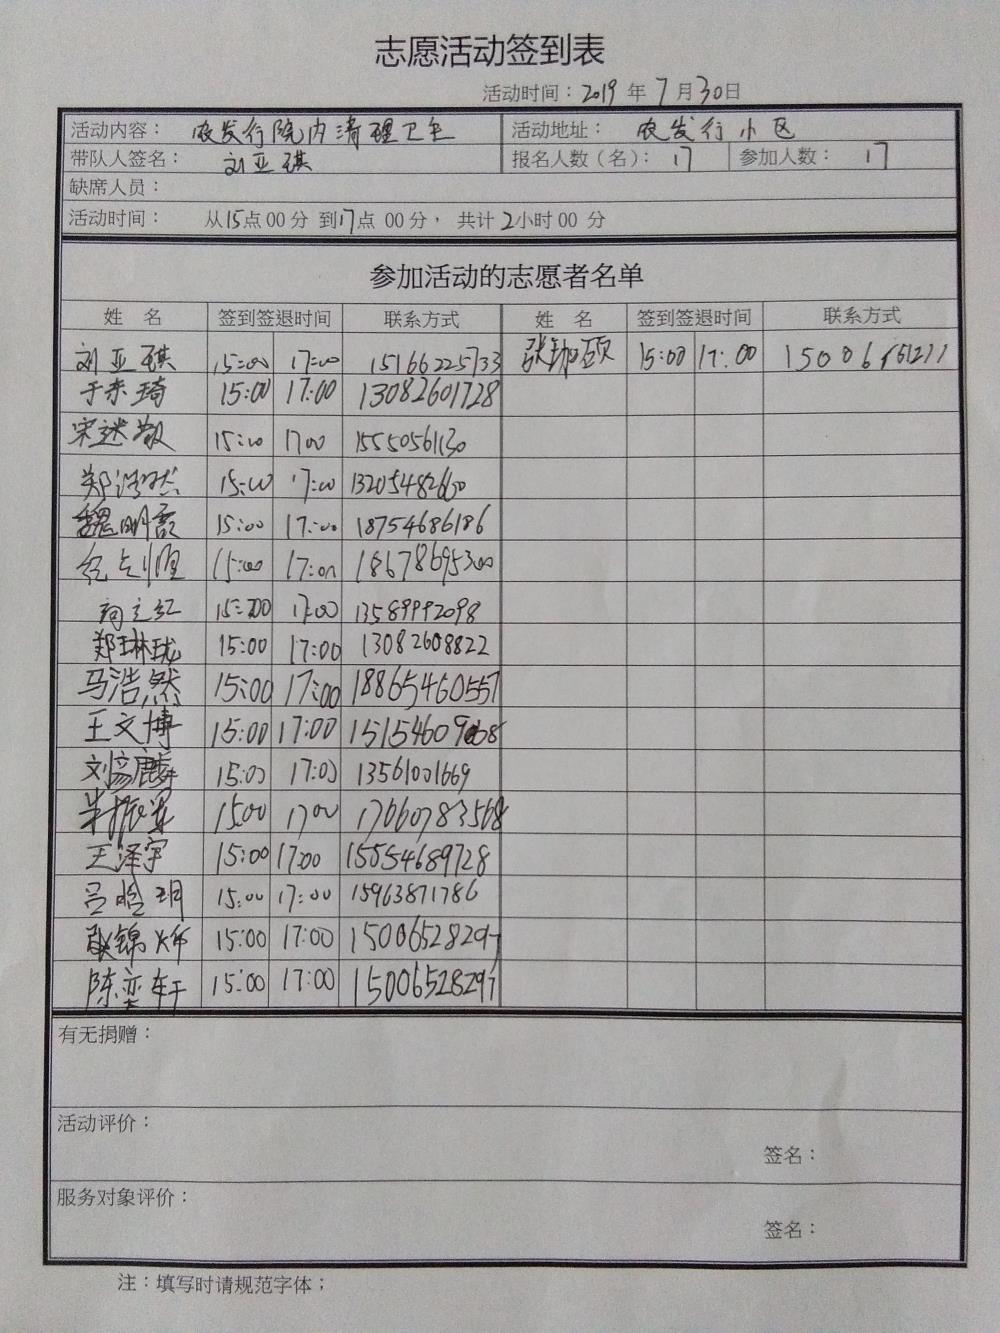 志愿活动签到表
活动时间：2019 年 7 月 30 日
活动内容： 农发行院内清理卫生 活动地址： 农发行小区
带队人签名： 刘亚琪 报名人数（名）： 17 参加人数： 17
缺席人员：
活动时间： 从15点00分 到17点 00分， 共计2小时00 分
参加活动的志愿者名单
姓 名 签到签退时间 联系方式 姓 名 签到签退时间 联系方式
刘亚琪 15:00 17:00 15166225733 15:00 17:00
15:00 17:00 13082601728
15:00 1700 15550561130
郑浩然 15:00 17:00 13205482600
15:00 17:00 18754686186
15:00 17:00 18678695300
15:00 17:00 13589992098
郑琳珑 15:00 17:00 13082608822
马浩然 15:00 17:00 18865460557
王文博 15:00 17:00
刘彦麟 15:00 17:00 13561001669
15:00 1700 17660783568
王泽宇 15:00 17:00 15554689728
15:00 17:00 15963871786
15:00 17:00 15006528297
陈奕轩 15:00 17:00 15006528297
有无捐赠：
活动评价：
签名：
服务对象评价：
签名：
注：填写时请规范字体；